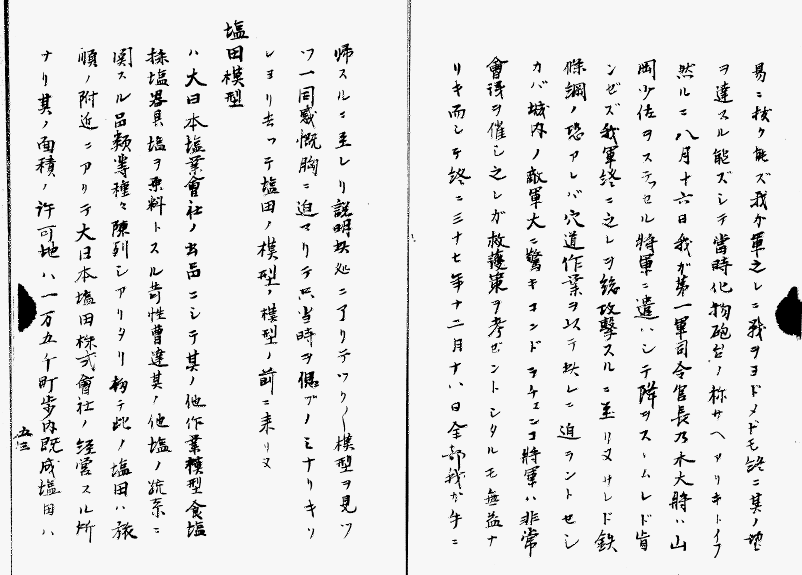 易ニ抜ク能ズ我が軍之レニ戦ヲヨドメドモ終ニ其ノ地
ヲ達スル能ズシテ当時化物砲台ノ称サヘアリキトイフ
然ルニ八月十六日我が第一軍司令官長乃木大将ハ山
岡少佐ヲステッセル将軍ニ遣ハシテ降ヲスヽムレド肯
ンゼズ我軍終ニ之レヲ総攻撃スルニ至リヌサレド鉄
條網ノ恐アレバ穴道作業ヲ以テ
迫ラントセシ
カバ城内ノ敵軍大ニ驚キコンドラチェンコ将軍ハ非常
會議ヲ催シ之レガ救護策ヲ考ゼントシタルモ無益ナ
リキ而シテ終ニ三十七年十二月十八日全部我が手ニ
帰スルニ至レリ説明
処ニアリテツクヾヽ模型ヲ見ツ
ツ一同感慨胸ニ迫マリテ只当時ヲ偲ブノミナリキソ
レヨリ去ッテ塩田ノ模型ノ模型ノ前ニ来リヌ
塩田模型
ハ大日本塩業會社ノ出品ニシテ其ノ他作業模型食塩
採塩器具塩ヲ原料トスル苛性曹達其ノ他塩ノ
系ニ
関スル品類等種々陳列シアリタリ
テ此ノ塩田ハ旅
順ノ附近ニアリテ大日本塩田株式會社ノ経営スル所
ナリ其ノ面積ノ許可地ハ一万五千町歩内既成塩田ハ
五三